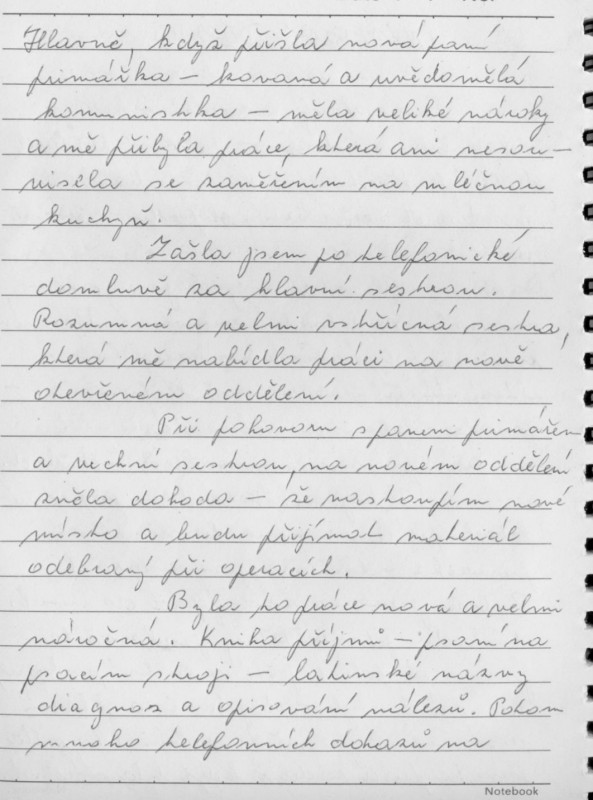 Hlavně, když přišla nová paní
primářka – kovaná a uvědomělá
komunistka – měla veliké nároky
a mě přibyla práce, která ani nesou-
visela se zaměřením na mléčnou
kuchyň.
Zašla jsem po telefonické
domluvě za hlavní sestrou.
Rozumná a velmi vstřícná sestra,
která mě nabídla práci na nově
otevřeném oddělení.
Při pohovoru s panem primářem
a vrchní sestrou, na novém oddělení
zněla dohoda – že nastoupím nové
místo a budu přijímat materiál
odebraný při operacích.
Byla to práce nová a velmi
náročná. Kniha příjmů – psaní na
psacím stroji – latinské názvy
diagnoz a opisování nálezů. Potom
mnoho telefonních dotazů na
Notebook